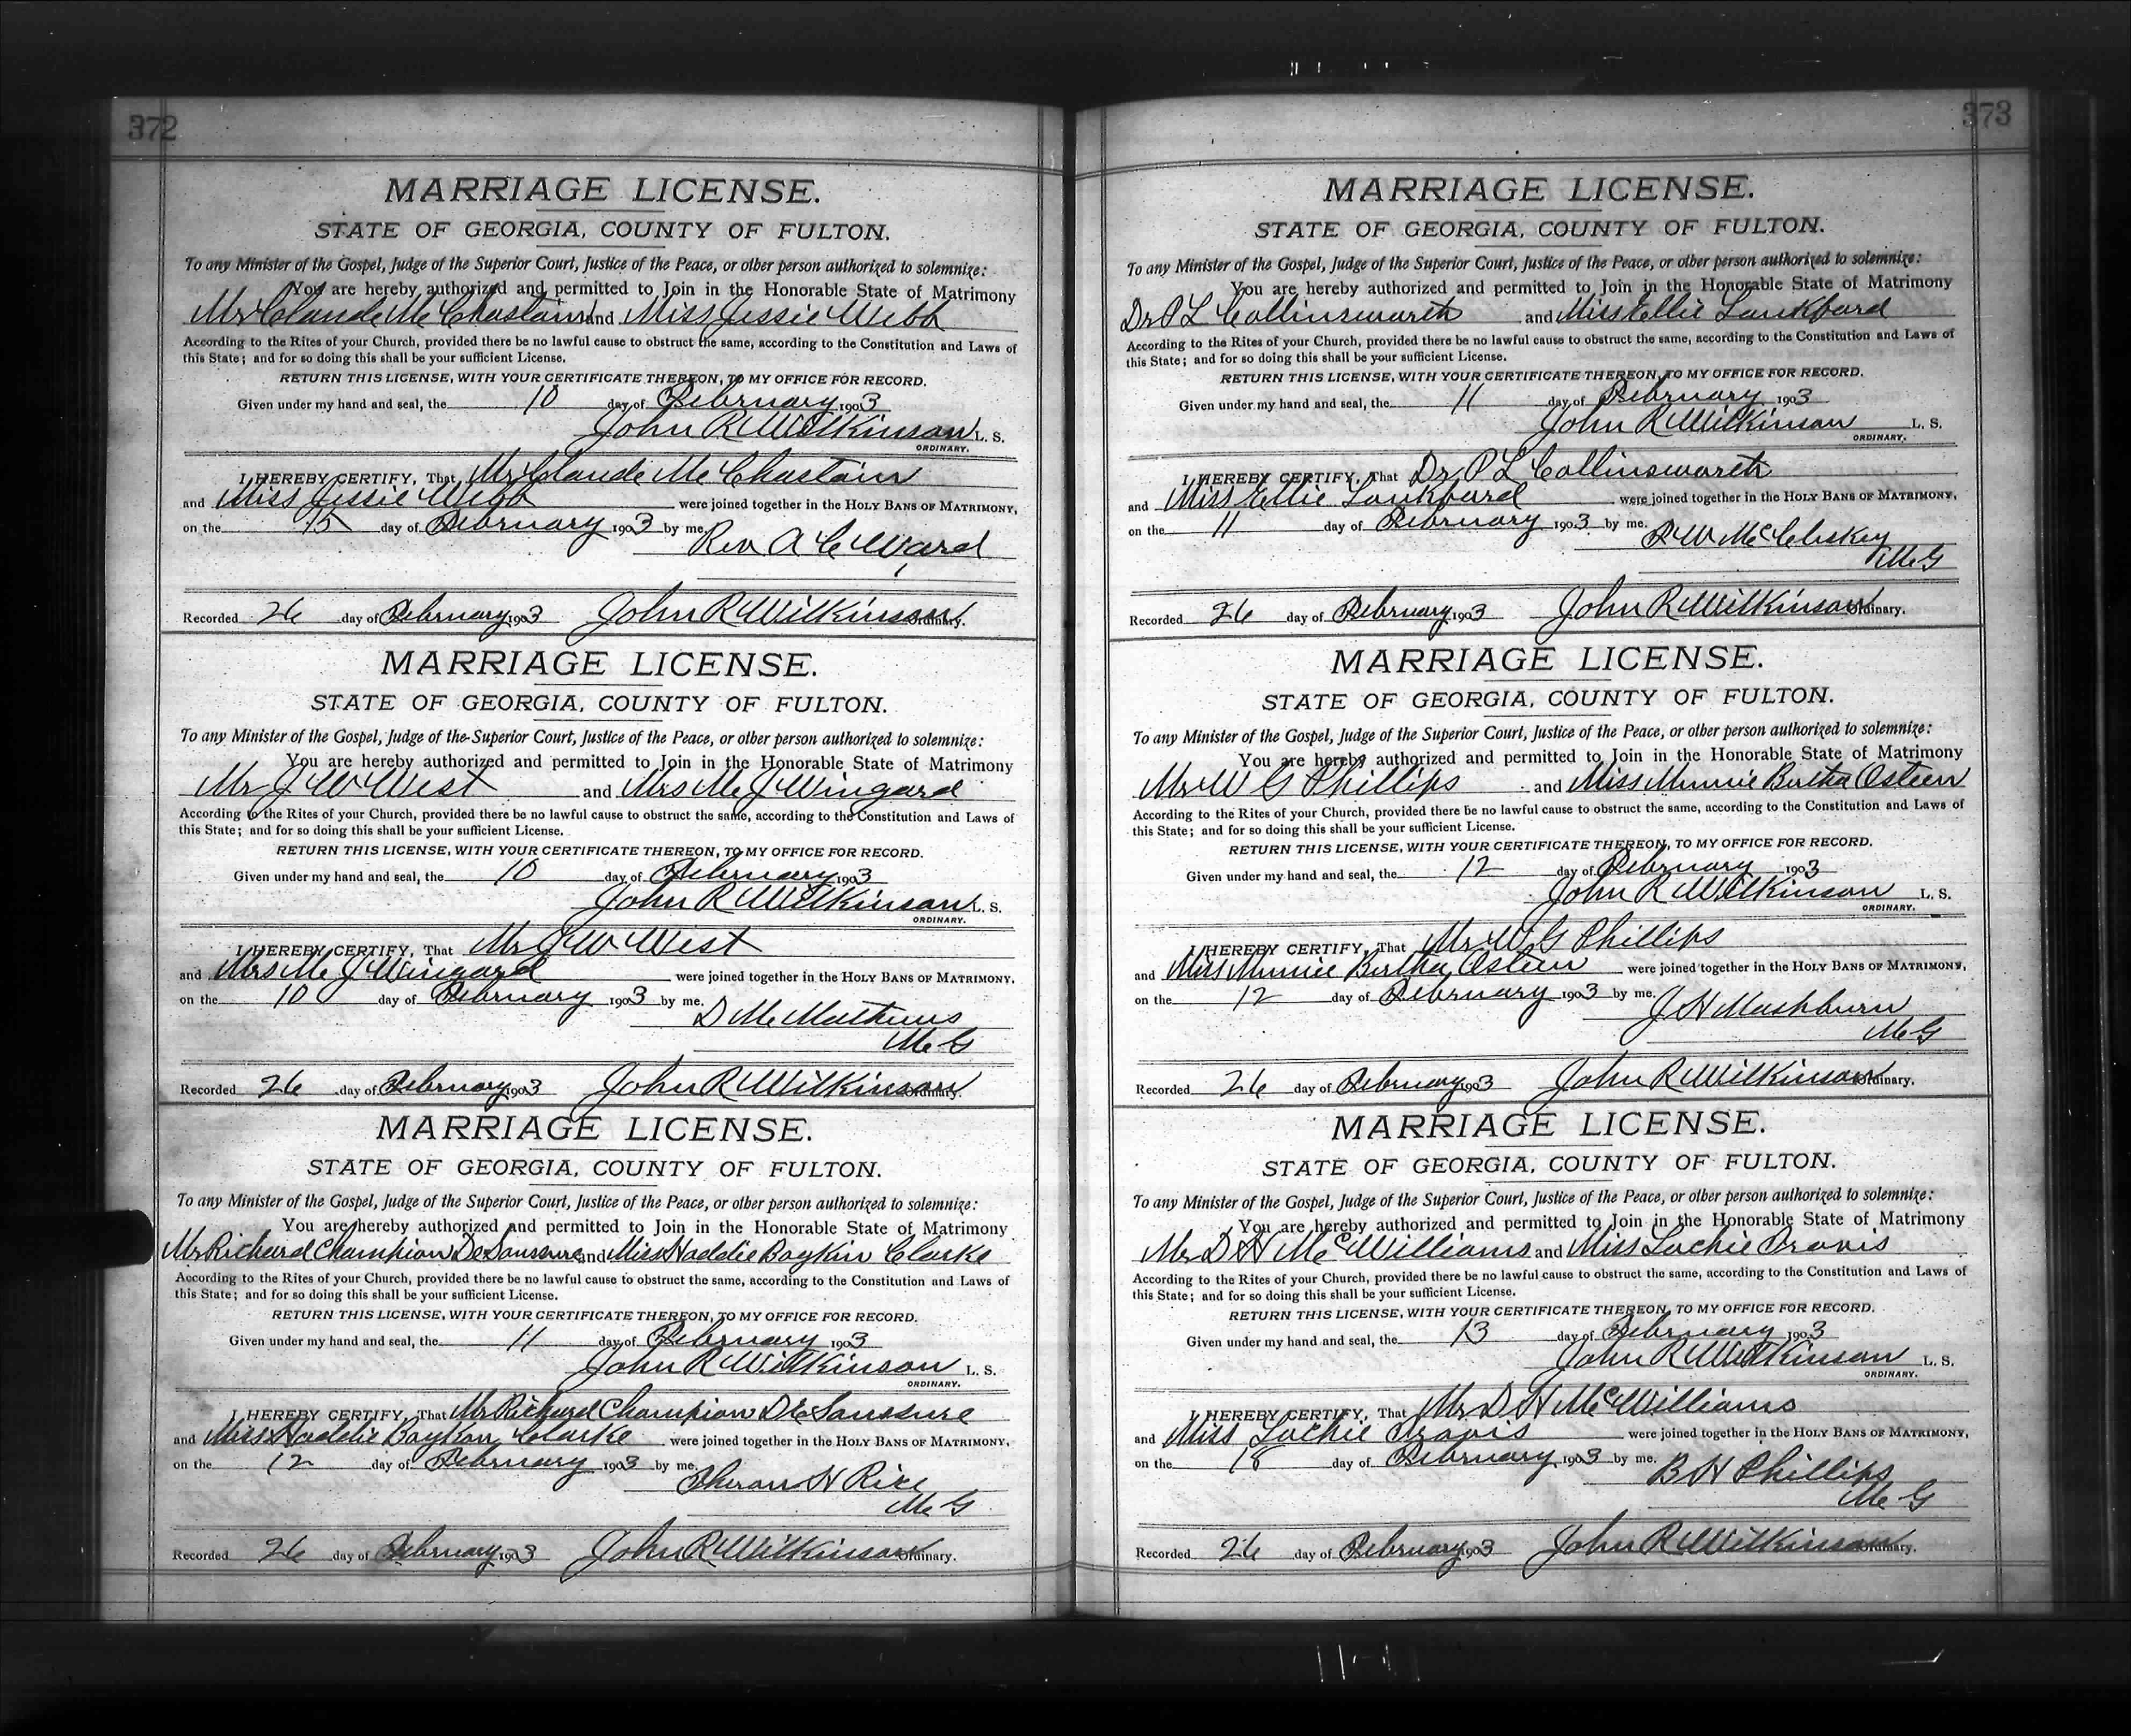 372
MARRIAGE LICENSE.
STATE OF GEORGIA, COUNTY OF FULTON.
To any Minister of the Gospel, Judge of the Superior Court, Justice of the Peace, or other person authorized to solemnize:
You are hereby authorized and permitted to Join in the Honorable State of Matrimony
Mr Claude M Chastain and Miss Jessie Webb
According to the Rites of your Church, provided there be no lawful cause to obstruct the same, according to the Constitution and Laws of
this State; and for so doing this shall be your sufficient License.
RETURN THIS LICENSE, WITH YOUR CERTIFICATE THEREON, TO MY OFFICE FOR RECORD.
Given under my hand and seal, the 10 day of February 1903
John R Wilkinson L. S.
ORDINARY.
I HEREBY CERTIFY, That Mr Claude M Chastain
and Miss Jessie Webb were joined together in the HOLY BANS OF MATRIMONY,
on the 15 day of February 1903 by me.
Rev A C Ward
Recorded 26 day of February 1903 John R Wilkinson Ordinary.
MARRIAGE LICENSE.
STATE OF GEORGIA, COUNTY OF FULTON.
To any Minister of the Gospel, Judge of the Superior Court, Justice of the Peace, or other person authorized to solemnize:
You are hereby authorized and permitted to Join in the Honorable State of Matrimony
Mr J W West and Mrs M J Wingard
According to the Rites of your Church, provided there be no lawful cause to obstruct the same, according to the Constitution and Laws of
this State; and for so doing this shall be your sufficient License.
RETURN THIS LICENSE, WITH YOUR CERTIFICATE THEREON, TO MY OFFICE FOR RECORD.
Given under my hand and seal, the 10 day of February 1903
John R Wilkinson L. S.
ORDINARY.
I HEREBY CERTIFY, That Mr J W West
and Mrs M J Wingard were joined together in the HOLY BANS OF MATRIMONY,
on the 10 day of February 1903 by me.
D M Mathews
M G
Recorded 26 day of February 1903 John R Wilkinson Ordinary.
MARRIAGE LICENSE.
STATE OF GEORGIA, COUNTY OF FULTON.
To any Minister of the Gospel, Judge of the Superior Court, Justice of the Peace, or other person authorized to solemnize:
You are hereby authorized and permitted to Join in the Honorable State of Matrimony
Mr Richard Champion DeSaussure and Miss Haddie Boykin Clarke
According to the Rites of your Church, provided there be no lawful cause to obstruct the same, according to the Constitution and Laws of
this State; and for so doing this shall be your sufficient License.
RETURN THIS LICENSE, WITH YOUR CERTIFICATE THEREON, TO MY OFFICE FOR RECORD.
Given under my hand and seal, the 11 day of February 1903
John R Wilkinson L. S.
ORDINARY.
I HEREBY CERTIFY, That Mr Richard Champion DeSaussure
and Miss Haddie Boykin Clarke were joined together in the HOLY BANS OF MATRIMONY,
on the 12 day of February 1903 by me.
Theron H Rice
M G
Recorded 26 day of February 1903 John R Wilkinson Ordinary.
373
MARRIAGE LICENSE.
STATE OF GEORGIA, COUNTY OF FULTON.
To any Minister of the Gospel, Judge of the Superior Court, Justice of the Peace, or other person authorized to solemnize:
You are hereby authorized and permitted to Join in the Honorable State of Matrimony
Dr P L Collinsworth and Miss Ellie Lankford
According to the Rites of your Church, provided there be no lawful cause to obstruct the same, according to the Constitution and Laws of
this State; and for so doing this shall be your sufficient License.
RETURN THIS LICENSE, WITH YOUR CERTIFICATE THEREON, TO MY OFFICE FOR RECORD.
Given under my hand and seal, the 11 day of February 1903
John R Wilkinson L. S.
ORDINARY.
I HEREBY CERTIFY, That Dr P L Collinsworth
and Miss Ellie Lankford were joined together in the HOLY BANS OF MATRIMONY,
on the 11 day of February 1903 by me.
R W McCleskey
M G
Recorded 26 day of February 1903 John R Wilkinson Ordinary.
MARRIAGE LICENSE.
STATE OF GEORGIA, COUNTY OF FULTON.
To any Minister of the Gospel, Judge of the Superior Court, Justice of the Peace, or other person authorized to solemnize:
You are hereby authorized and permitted to Join in the Honorable State of Matrimony
Mr W G Phillips and Miss Minnie Bertha Osteen
According to the Rites of your Church, provided there be no lawful cause to obstruct the same, according to the Constitution and Laws of
this State; and for so doing this shall be your sufficient License.
RETURN THIS LICENSE, WITH YOUR CERTIFICATE THEREON, TO MY OFFICE FOR RECORD.
Given under my hand and seal, the 12 day of February 1903
John R Wilkinson L. S.
ORDINARY.
I HEREBY CERTIFY, That Mr W G Phillips
and Miss Minnie Bertha Osteen were joined together in the HOLY BANS OF MATRIMONY,
on the 12 day of February 1903 by me.
J H Mashburn
M G
Recorded 26 day of February 1903 John R Wilkinson Ordinary.
MARRIAGE LICENSE.
STATE OF GEORGIA, COUNTY OF FULTON.
To any Minister of the Gospel, Judge of the Superior Court, Justice of the Peace, or other person authorized to solemnize:
You are hereby authorized and permitted to Join in the Honorable State of Matrimony
Mr D H McWilliams and Miss Luckie Travis
According to the Rites of your Church, provided there be no lawful cause to obstruct the same, according to the Constitution and Laws of
this State; and for so doing this shall be your sufficient License.
RETURN THIS LICENSE, WITH YOUR CERTIFICATE THEREON, TO MY OFFICE FOR RECORD.
Given under my hand and seal, the 13 day of February 1903
John R Wilkinson L. S.
ORDINARY.
I HEREBY CERTIFY, That Mr D H McWilliams
and Miss Luckie Travis were joined together in the HOLY BANS OF MATRIMONY,
on the 18 day of February 1903 by me.
B H Phillips
M G
Recorded 26 day of February 1903 John R Wilkinson Ordinary.